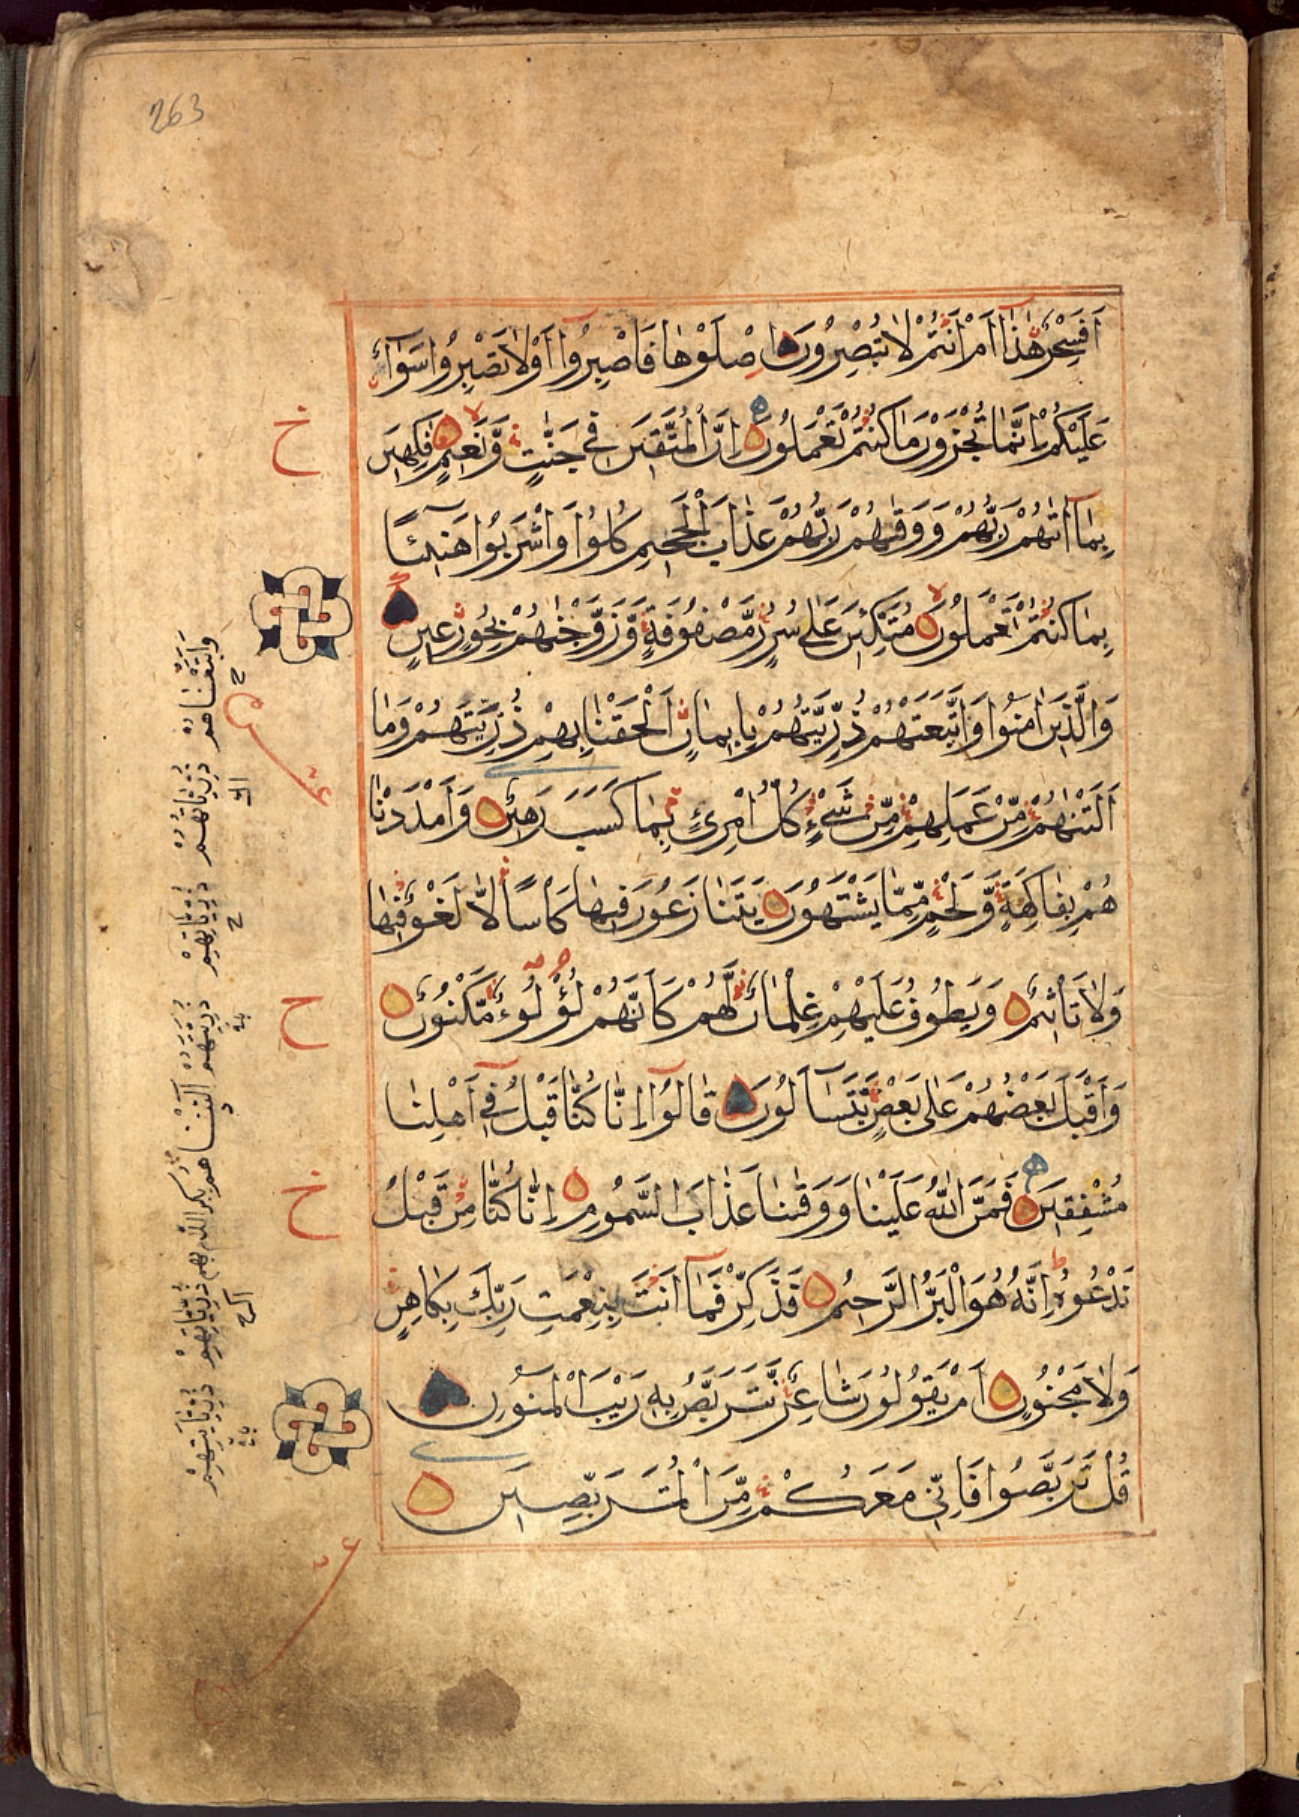 263
أَفَسِحْرٌ هٰذَا أَمْ أَنْتُمْ لَا تُبْصِرُونَ اِصْلَوْهَا فَاصْبِرُوا أَوْ لَا تَصْبِرُوا سَوَآءٌ
عَلَيْكُمْ إِنَّمَا تُجْزَوْنَ مَا كُنْتُمْ تَعْمَلُونَ إِنَّ الْمُتَّقِينَ فِي جَنّٰتٍ وَّنَعِيمٍ فٰكِهِينَ
بِمَآ اٰتٰهُمْ رَبُّهُمْ وَوَقٰهُمْ رَبُّهُمْ عَذَابَ الْجَحِيمِ كُلُوا وَاشْرَبُوا هَنِيٓئًا
بِمَا كُنْتُمْ تَعْمَلُونَ مُتَّكِئِينَ عَلٰى سُرُرٍ مَّصْفُوفَةٍ وَّزَوَّجْنٰهُمْ بِحُورٍ عِينٍ
وَالَّذِينَ اٰمَنُوا وَاتَّبَعَتْهُمْ ذُرِّيَّتُهُمْ بِإِيمَانٍ أَلْحَقْنَا بِهِمْ ذُرِّيَّتَهُمْ وَمَا
أَلَتْنٰهُمْ مِّنْ عَمَلِهِمْ مِّنْ شَيْءٍ كُلُّ امْرِئٍ بِمَا كَسَبَ رَهِينٌ وَأَمْدَدْنَا
هُمْ بِفَاكِهَةٍ وَّلَحْمٍ مِّمَّا يَشْتَهُونَ يَتَنَازَعُونَ فِيهَا كَاسًا لَّا لَغْوٌ فِيهَا
وَلَا تَأْثِيمٌ وَيَطُوفُ عَلَيْهِمْ غِلْمَانٌ لَّهُمْ كَأَنَّهُمْ لُؤْلُؤٌ مَّكْنُونٌ
وَأَقْبَلَ بَعْضُهُمْ عَلٰى بَعْضٍ يَّتَسَآءَلُونَ قَالُوٓا إِنَّا كُنَّا قَبْلُ فِيٓ أَهْلِنَا
مُشْفِقِينَ فَمَنَّ اللّٰهُ عَلَيْنَا وَوَقٰنَا عَذَابَ السَّمُومِ إِنَّا كُنَّا مِنْ قَبْلُ
نَدْعُوهُ إِنَّهُ هُوَ الْبَرُّ الرَّحِيمُ فَذَكِّرْ فَمَآ أَنْتَ بِنِعْمَتِ رَبِّكَ بِكَاهِنٍ
وَلَا مَجْنُونٍ أَمْ يَقُولُونَ شَاعِرٌ نَّتَرَبَّصُ بِهِ رَيْبَ الْمَنُونِ
قُلْ تَرَبَّصُوا فَإِنِّي مَعَكُمْ مِّنَ الْمُتَرَبِّصِينَ
وَأَتْبَعْنَاهُمْ ذُرِّيَّاتِهِمْ